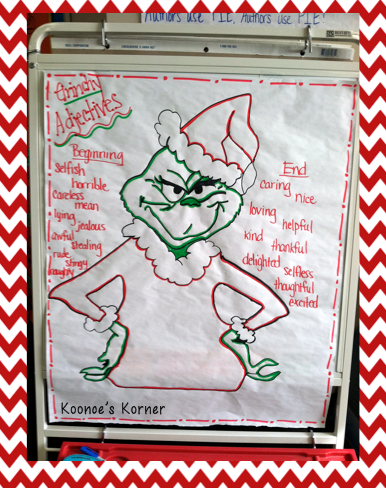 Authors use PIE, Authors use PIE!
Grinchy
Adjectives
Beginning
selfish
horrible
careless
mean
lying
jealous
awful
stealing
rude
stingy
naughty
End
caring
nice
loving
helpful
kind
thankful
delighted
selfless
thoughtful
excited
Koonce's Korner